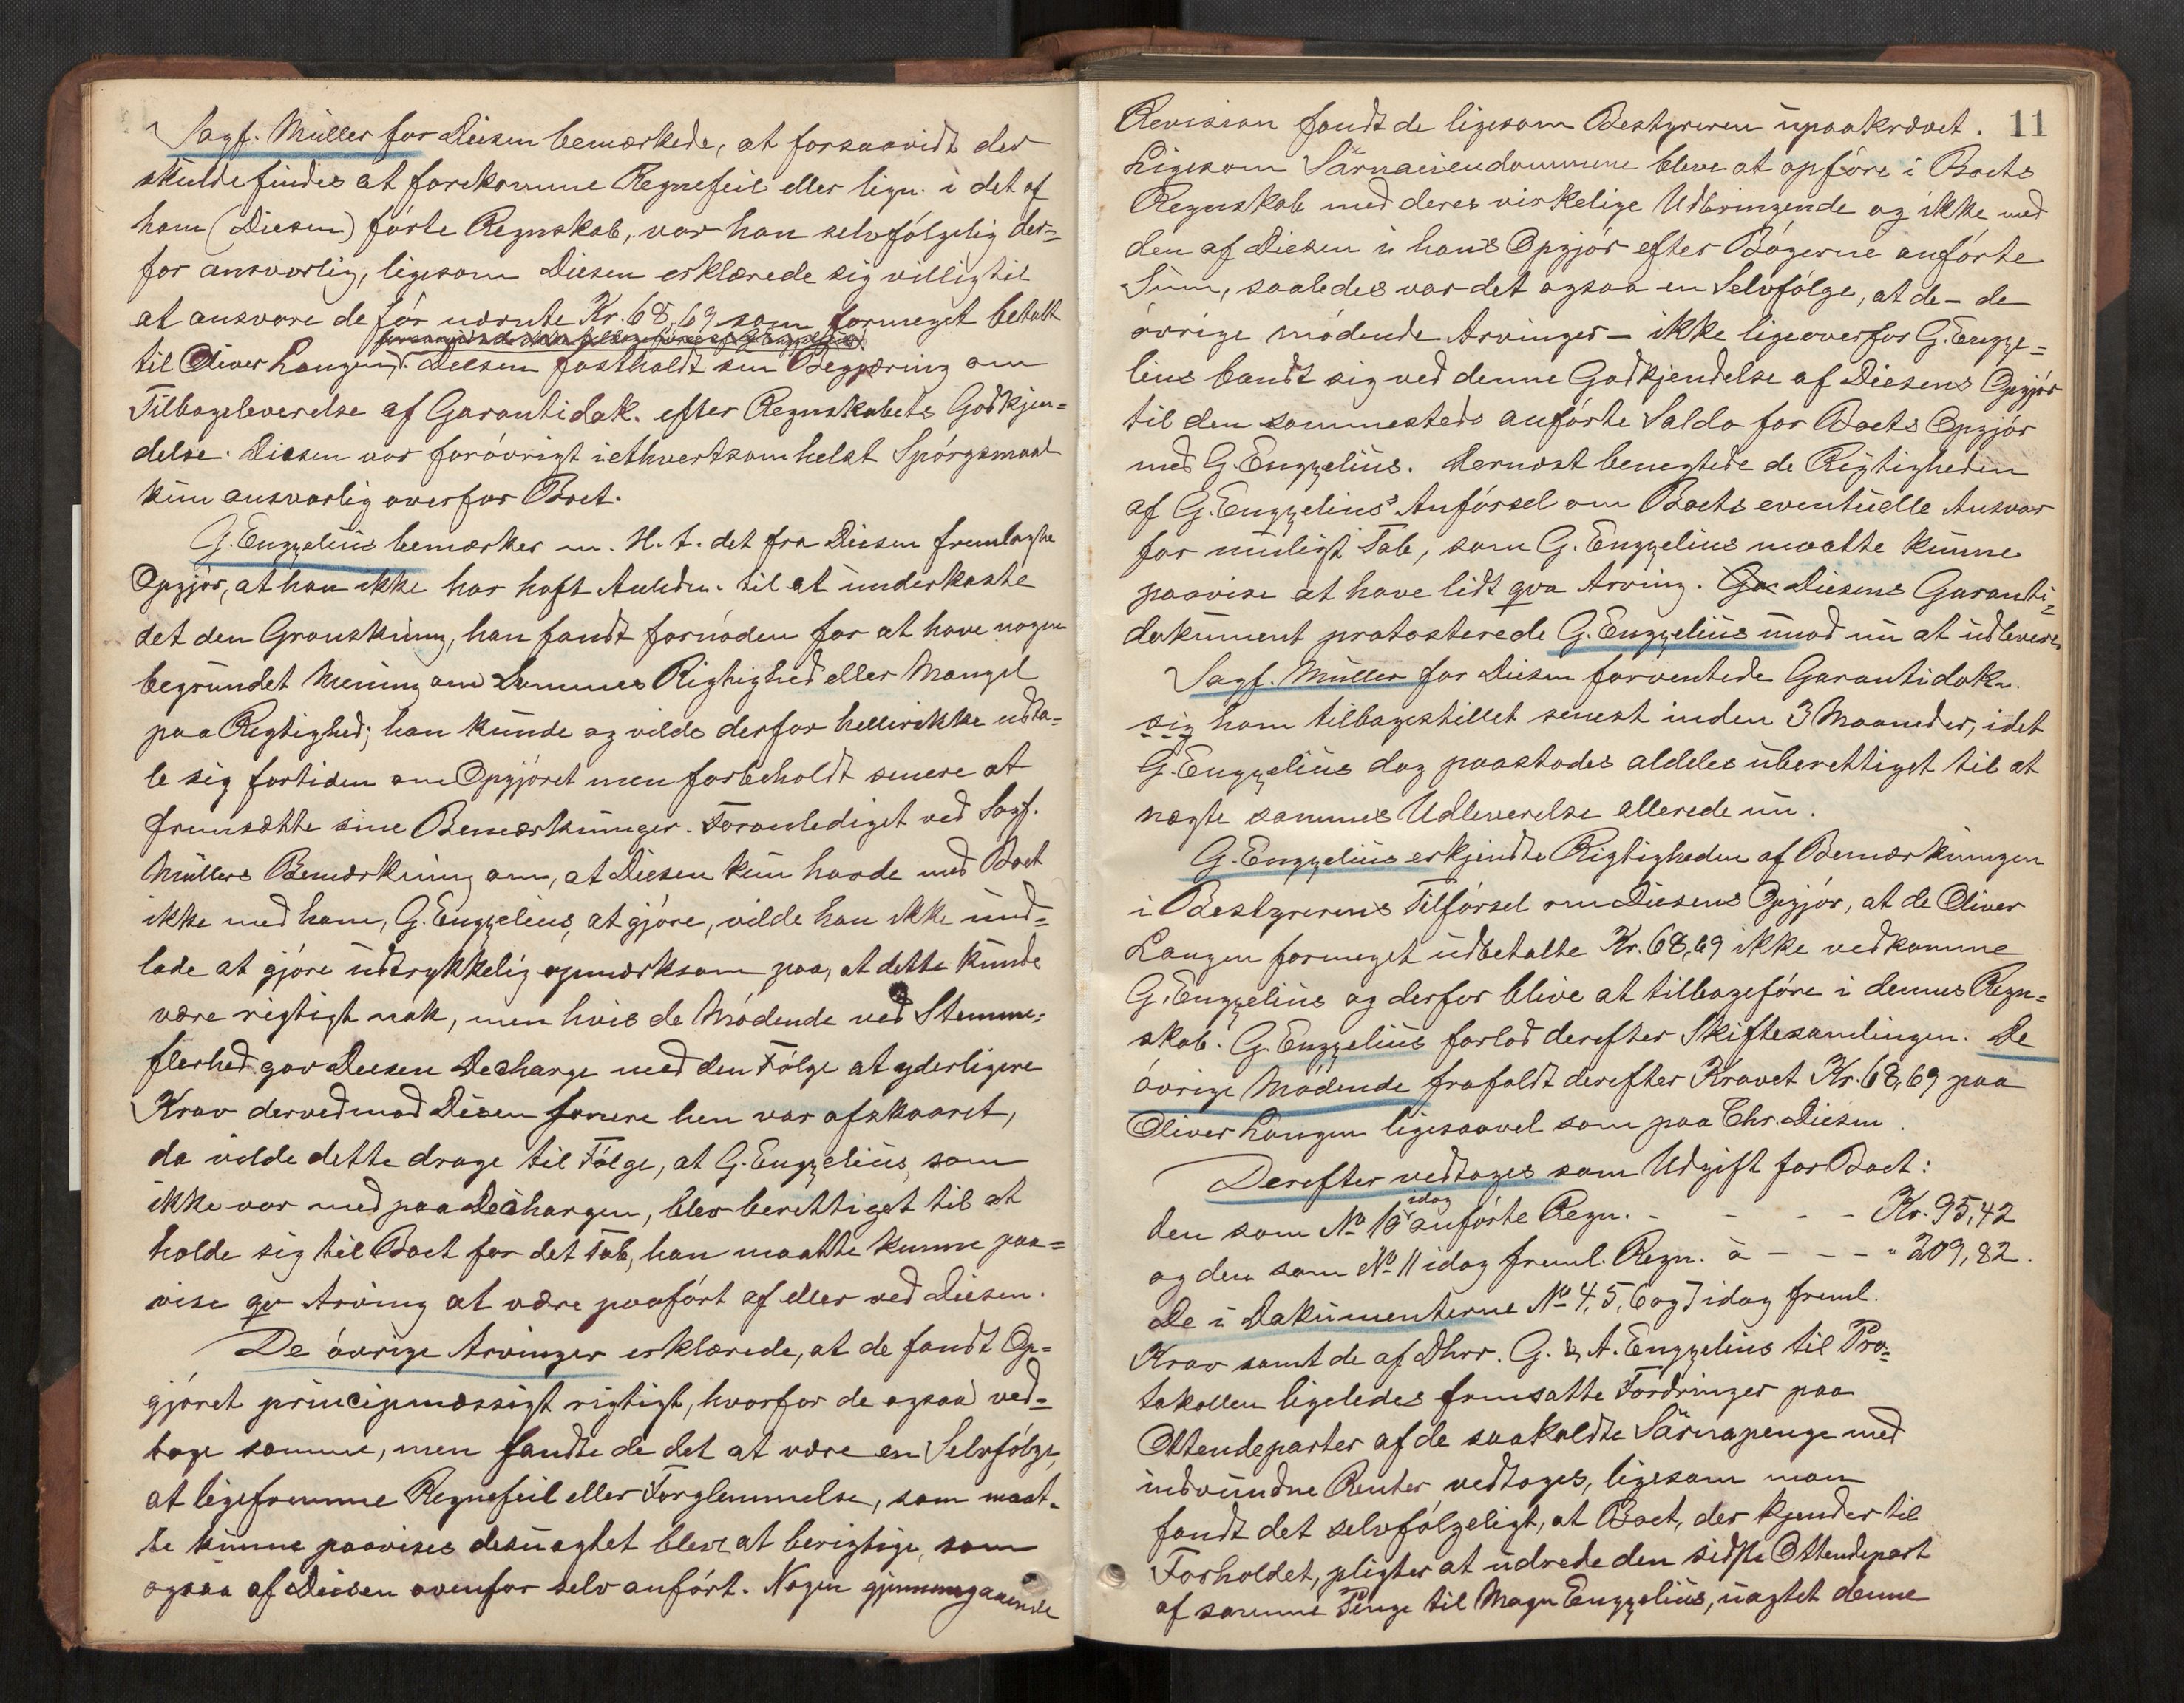 Sagf. Müller for Diesen bemærkede, at forsaavidt der
skulde findes at forekomme Regnefeil eller lign. i det af
ham (Diesen) førte Regnskab, var han selvfølgelig der=
for ansvarlig, ligesom Diesen erklærede sig villig til
at ansvare de før nævnte Kr. 68,69 som formeget betalt
til Oliver Langen. Diesen fastholdt sin Begjæring om
Tilbageleverelse af Garantidok. efter Regnskabets Godkjen=
delse. Diesen var forøvrigt i ethvertsomhelst Spørgsmaal
kun ansvarlig overfor Boet.
G. Engzelius bemærker m. H. t. det fra Diesen fremlagte
Opgjør, at han ikke har haft Anledn. til at underkaste
det den Granskning, han fandt fornøden for at have nogen
begrundet Mening om Sammes Rigtighed eller Mangel
paa Rigtighed; han kunde og vilde derfor heller ikke udta=
le sig fortiden om Opgjøret men forbeholdt senere at
fremsætte sine Bemærkninger. Foranlediget ved Sagf.
Müllers Bemærkning om, at Diesen kun havde med Boet
ikke med ham, G. Engzelius, at gjøre, vilde han ikke und=
lade at gjøre udtrykkelig opmærksom paa, at dette kunde
være rigtigt nok, men hvis de Mødende ved Stemme=
flerhed gav Diesen Decharge med den Følge at yderligere
Krav derved mod Diesen for ere hen var afskaaret,
da vilde dette drage til Følge, at G. Engzelius, som
ikke var med paa Dechargen, blev berettiget til at
holde sig til Boet for det Tab, han maatte kunne paa=
vise qv Arving at være paaført af eller ved Diesen.
De øvrige Arvinger erklærede, at de fandt Op=
gjøret principmæssigt rigtigt, hvorfor de ogsaa ved=
tage samme, men fandte de det at være en Selvfølge,
at ligefremme Regnefeil eller Forglemmelse, som maat=
te kunne paavises desuagtet blev at berigtige, som
ogsaa af Diesen ovenfor selv anført. Nogen gjennemgaaende
Revision fandt de ligesom Bestyreren upaakrævet. 11
Ligesom Särnaeiendommene bleve at opføre i Boets
Regnskab med deres virkelige Udbringende og ikke med
den af Diesen i hans Opgjør efter Bøgerne anførte
Sum, saaledes var det ogsaa en Selvfølge, at de - de
øvrige mødende Arvinger - ikke ligeoverfor G. Engze=
lius bandt sig ved denne Godkjendelse af Diesens Opgjør
til den sammesteds anførte Saldo for Boets Opgjør
med G. Engzelius. Dernæst benegtede de Rigtigheden
af G. Engzelius' Anførsel om Boets eventuelle Ansvar
for muligt Tab, som G. Engzelius maatte kunne
paavise at have lidt qva Arving. Diesens Garanti=
dokument protesterede G. Engzelius mod nu at udlevere.
Sagf. Müller for Diesen forventede Garantidokn.
sig ham tilbagestillet senest inden 3 Maaneder, idet
G. Engzelius dog paastodes aldeles uberettiget til at
nægte sammes Udleverelse allerede nu.
G. Engzelius erkjendte Rigtigheden af Bemærkningen
i Bestyrerens Tilførsel om Diesens Opgjør, at de Oliver
Langen formeget udbetalte Kr. 68,69 ikke vedkomme
G. Engzelius og derfor blive at tilbageføre i dennes Regn=
skab. G. Engzelius forlod derefter Skiftesamlingen. De
øvrige Mødende frafaldt derefter Kravet Kr. 68,69 paa
Oliver Langen ligesaavel som paa Chr. Diesen.
Derefter vedtages som Udgift for Boet:
idag
den som No 10 anførte Regn. - - - - Kr. 95,42
og den som No 11 idag freml. Regn. à - - - " 209,82.
De i Dokumenterne No 4, 5, 6 og 7 idag freml.
Krav samt de af Dhrr. G. & A. Engzelius til Pro=
tokollen ligeledes fremsatte Fordringer paa
Ottendeparter af de saakaldte Särnapenge med
indvundne Renter vedtoges, ligesom man
fandt det selvfølgeligt, at Boet, der kjender til
Forholdet, pligter at udrede den sidste Ottendepart
af samme Penge til Magn Engzelius, uagtet denne